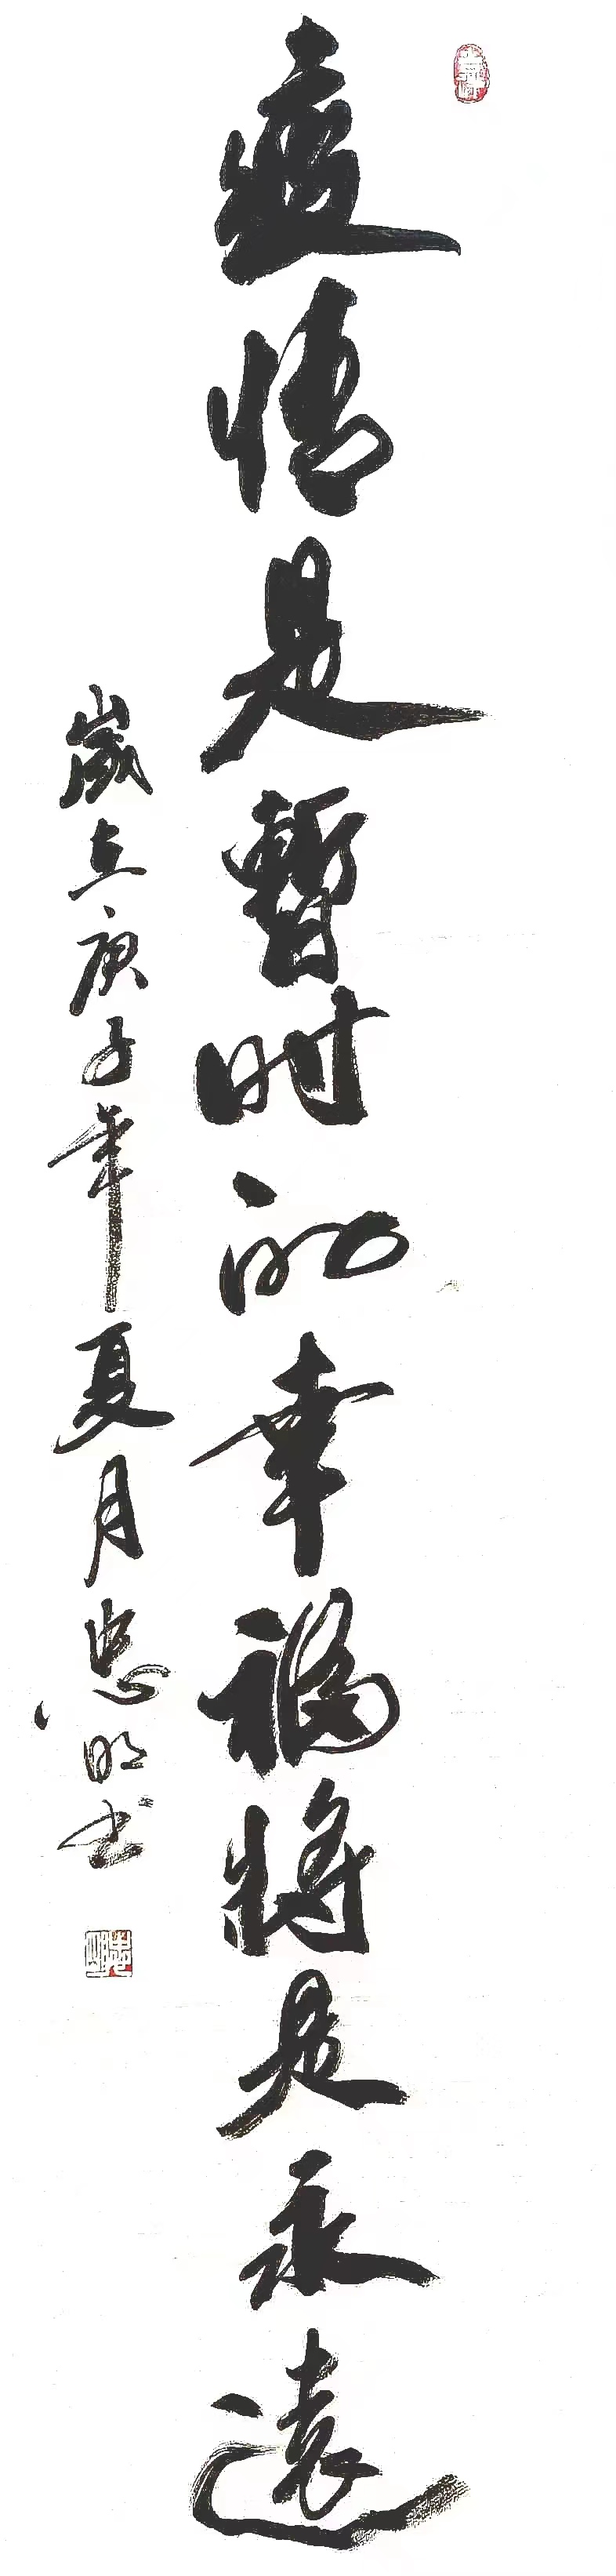 疫情是暫时的幸福將是永遠
歲在庚子年夏月忠明书